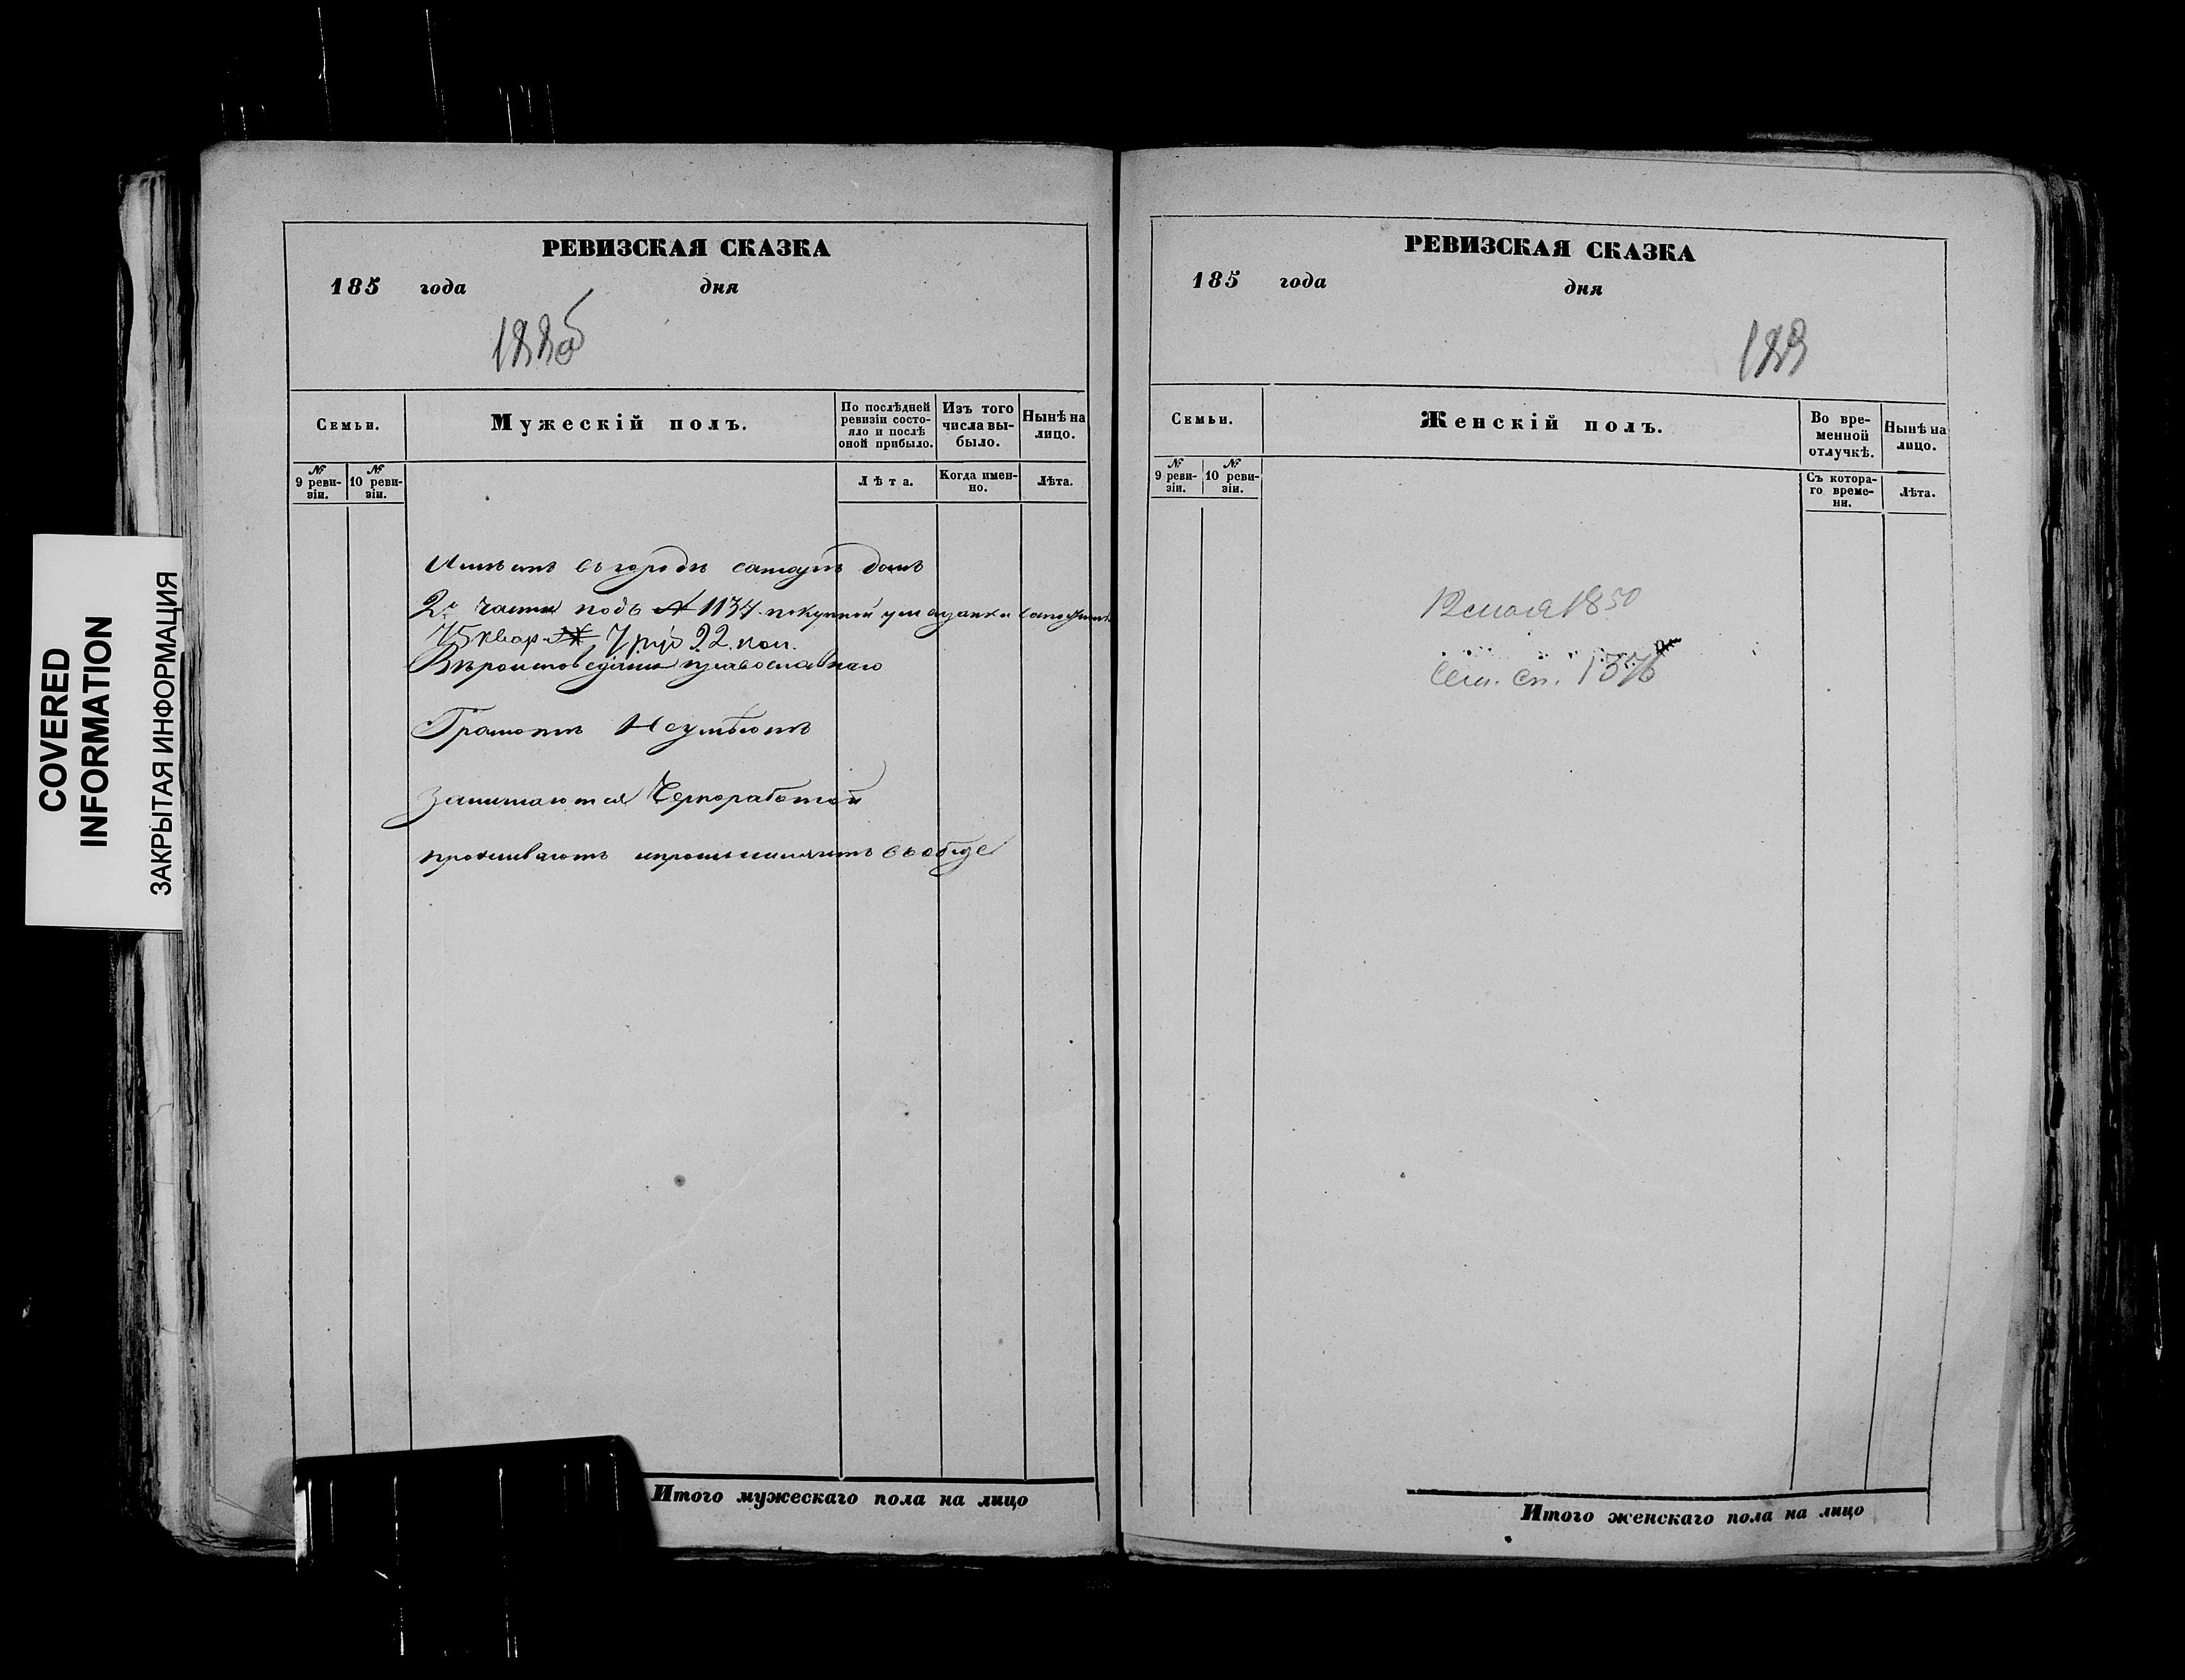 COVERED
INFORMATION
ЗАКРЫТАЯ ИНФОРМАЦИЯ
РЕВИЗСКАЯ СКАЗКА
185 года дня
Семьи.
Мужескій полъ.
По послѣдней ревизіи состояло и послѣ оной прибыло.
Изъ того числа выбыло.
Нынѣ на лицо.
№ 9 ревизіи.
№ 10 ревизіи.
Лѣта.
Когда именно.
Лѣта.
Имѣетъ въ городѣ домъ
2й части подъ № 1134
75 квар 7 руб 22 коп.
Вѣроисповеданія православнаго
Грамотѣ Неумѣютъ
Занимаются Черноработой
проживаютъ
Итого мужескаго пола на лицо
РЕВИЗСКАЯ СКАЗКА
185 года дня
Семьи.
Женскій полъ.
Во временной отлучкѣ.
Нынѣ на лицо.
№ 9 ревизіи.
№ 10 ревизіи.
Съ котораго времени.
Лѣта.
12 мая 1850
Итого женскаго пола на лицо